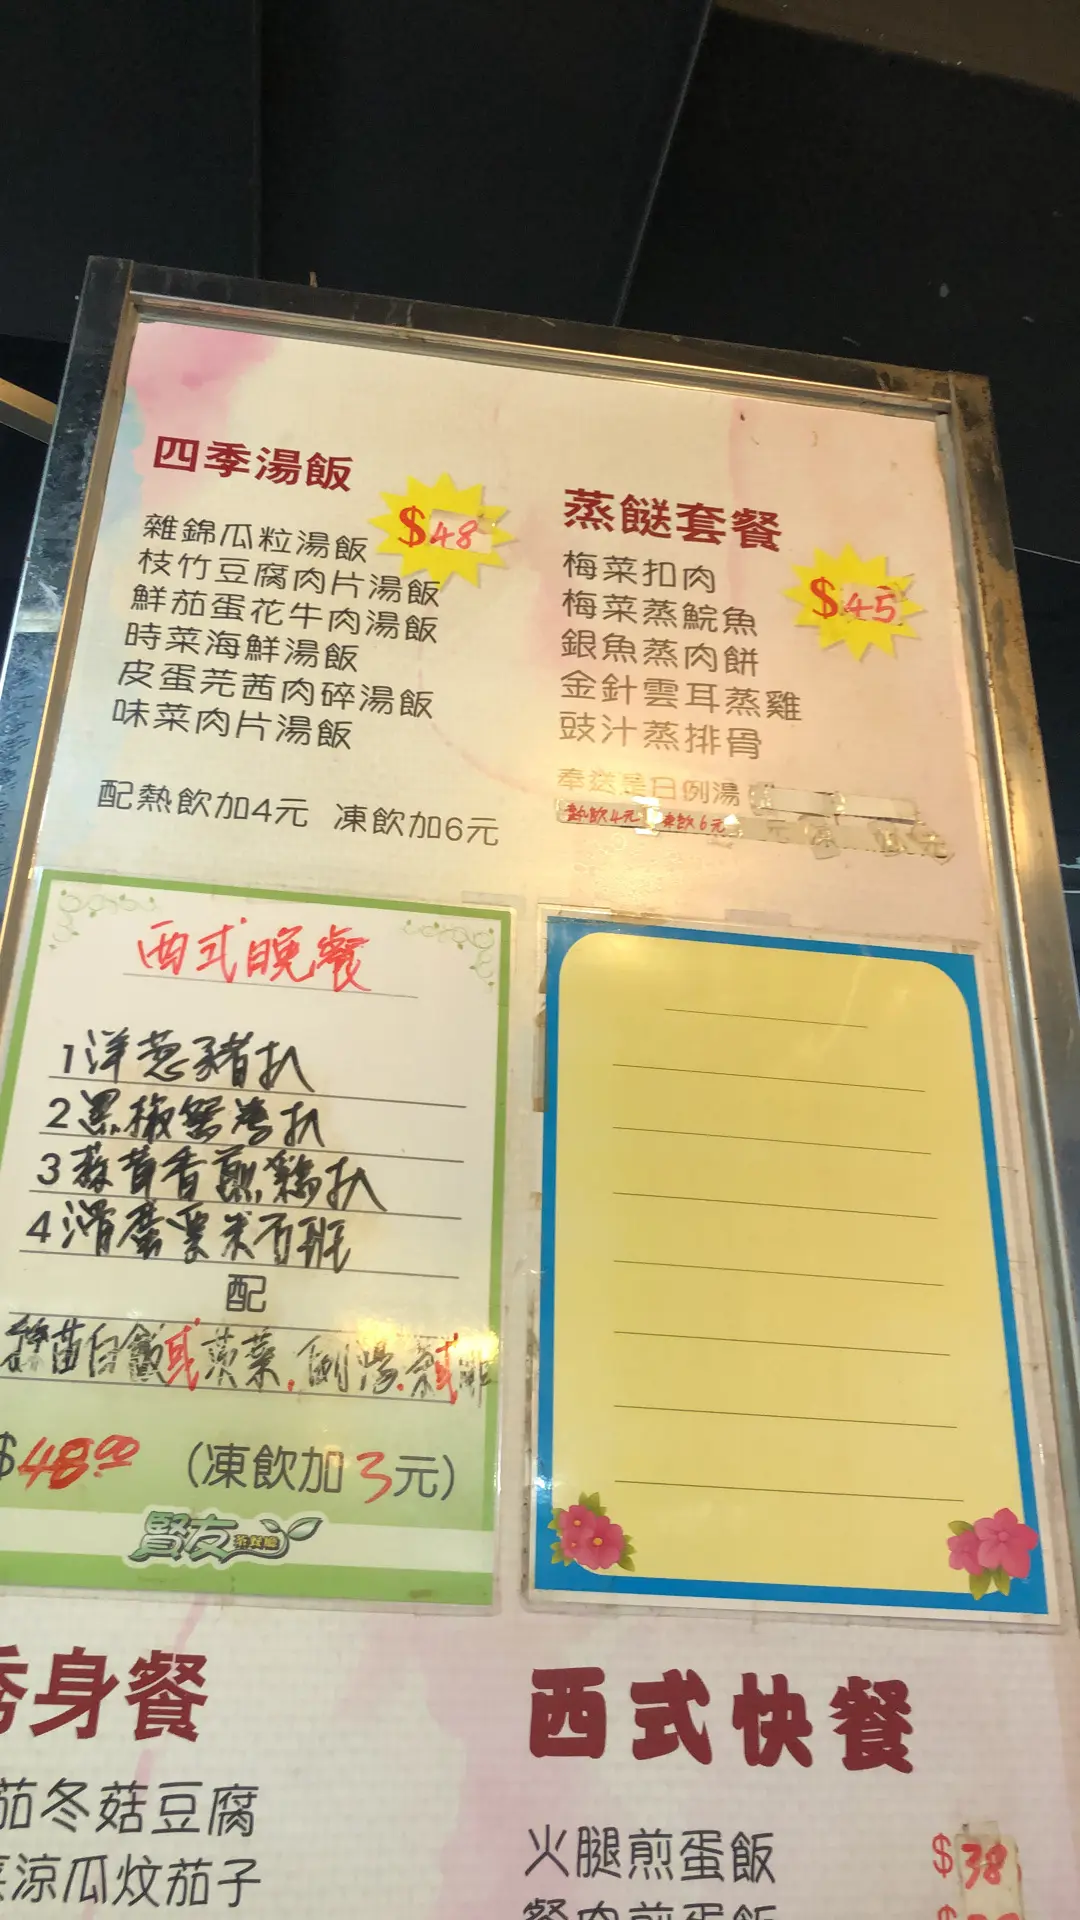 四季湯飯
$48
雜錦瓜粒湯飯
枝竹豆腐肉片湯飯
鮮茄蛋花牛肉湯飯
時菜海鮮湯飯
皮蛋芫茜肉碎湯飯
味菜肉片湯飯
配熱飲加4元 凍飲加6元
蒸餸套餐
$45
梅菜扣肉
梅菜蒸鯇魚
銀魚蒸肉餅
金針雲耳蒸雞
豉汁蒸排骨
奉送是日例湯
熱飲4元 凍飲6元
西式晚餐
1洋葱豬扒
2黑椒
扒
3蒜茸香煎雞扒
4滑蛋粟米石班
配
苗白飯或
菜.例湯.茶或啡
$48.00 (凍飲加3元)
賢友茶餐廳
身餐
茄冬菇豆腐
涼瓜炆茄子
西式快餐
火腿煎蛋飯 $38
餐肉煎蛋飯